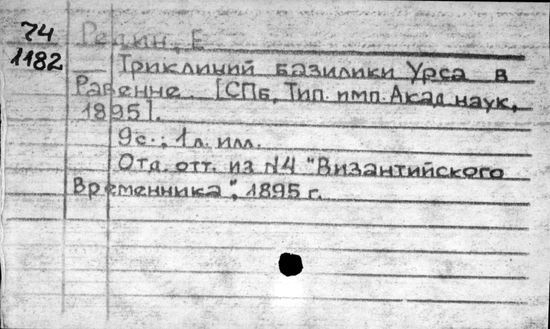 74
1182
Редин, Е
Триклиний базилики Урса в
Равенне. [СПб, Тип. имп. Акад. наук,
1895].
9с.; 1л. илл.
Отд. отт. из №4 "Византийского
Временника", 1895 г.